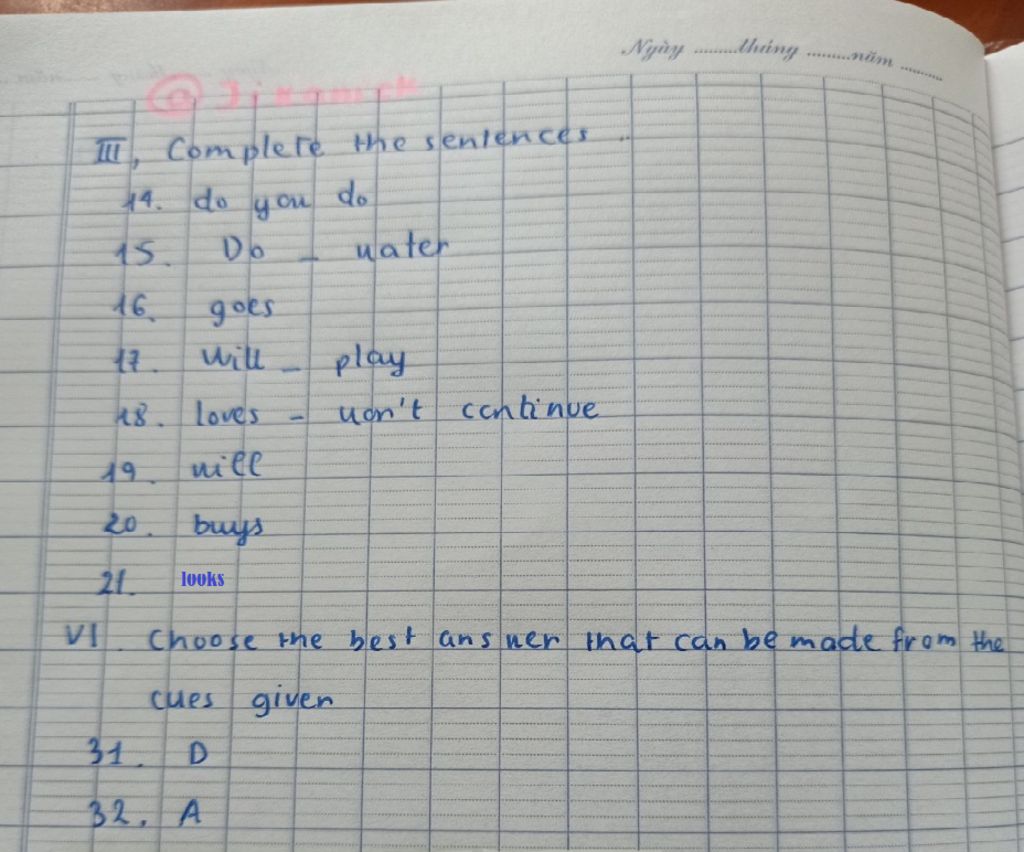 Ngày ........tháng ........năm ........
@ Jixanick
III, Complete the sentences ..
14. do you do
15. Do - water
16. goes
17. Will - play
18. loves - won't continue
19. will
20. buys
21. looks
VI. Choose the best answer that can be made from the
cues given
31. D
32. A